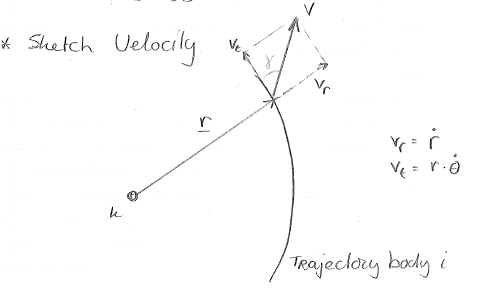 * Sketch Velocity
V
Vt
γ
Vr
r
k
Vr = ṙ
Vt = r · θ̇
Trajectory body i